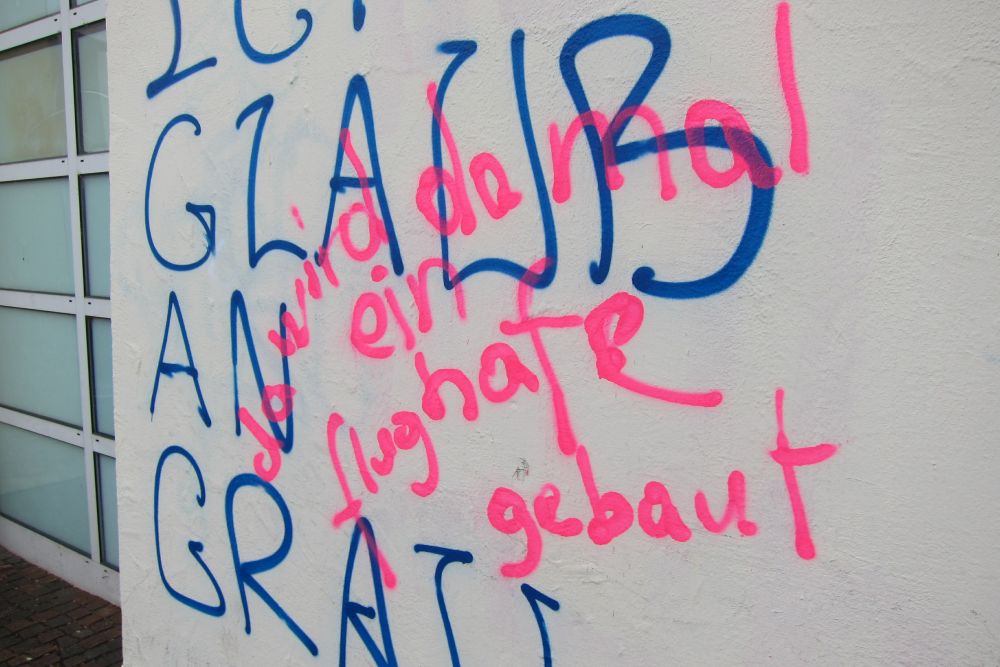 GLAUB
AN
da wird da mal
ein
flughafe
gebaut